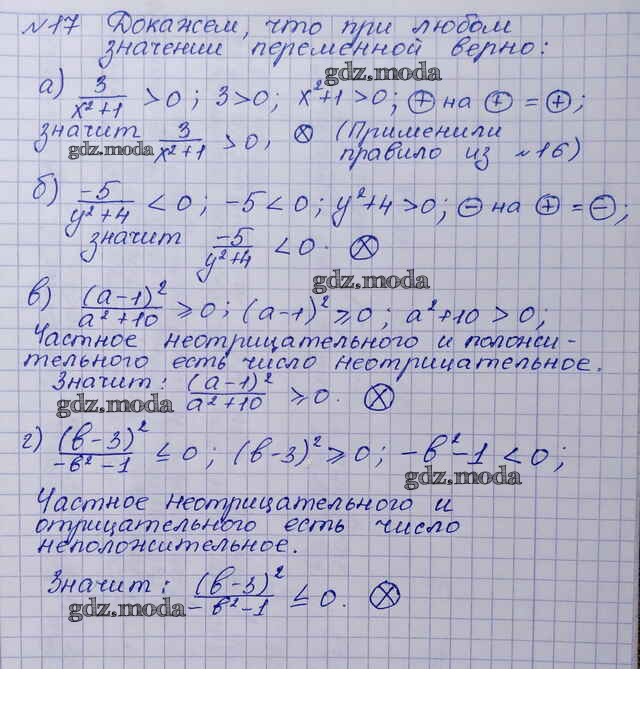 №17 Докажем, что при любом
значении переменной верно:
gdz.moda
а) 3/(x²+1) > 0; 3>0; x²+1>0; ⊕ на ⊕ = ⊕;
значит 3/(x²+1) > 0, ⊗ (Применили
gdz.moda
правило из №16)
б) -5/(y²+4) < 0; -5<0; y²+4>0; ⊖ на ⊕ = ⊖;
значит -5/(y²+4) < 0. ⊗
gdz.moda
в) (a-1)²/(a²+10) ⩾ 0; (a-1)² ⩾ 0; a²+10 > 0;
Частное неотрицательного и положи-
тельного есть число неотрицательное.
Значит: (a-1)²/(a²+10) ⩾ 0. ⊗
gdz.moda
г) (в-3)²/(-в²-1) ≤ 0; (в-3)² ⩾ 0; -в²-1 < 0;
gdz.moda
Частное неотрицательного и
отрицательного есть число
неположительное.
Значит: (в-3)²/(-в²-1) ≤ 0. ⊗
gdz.moda